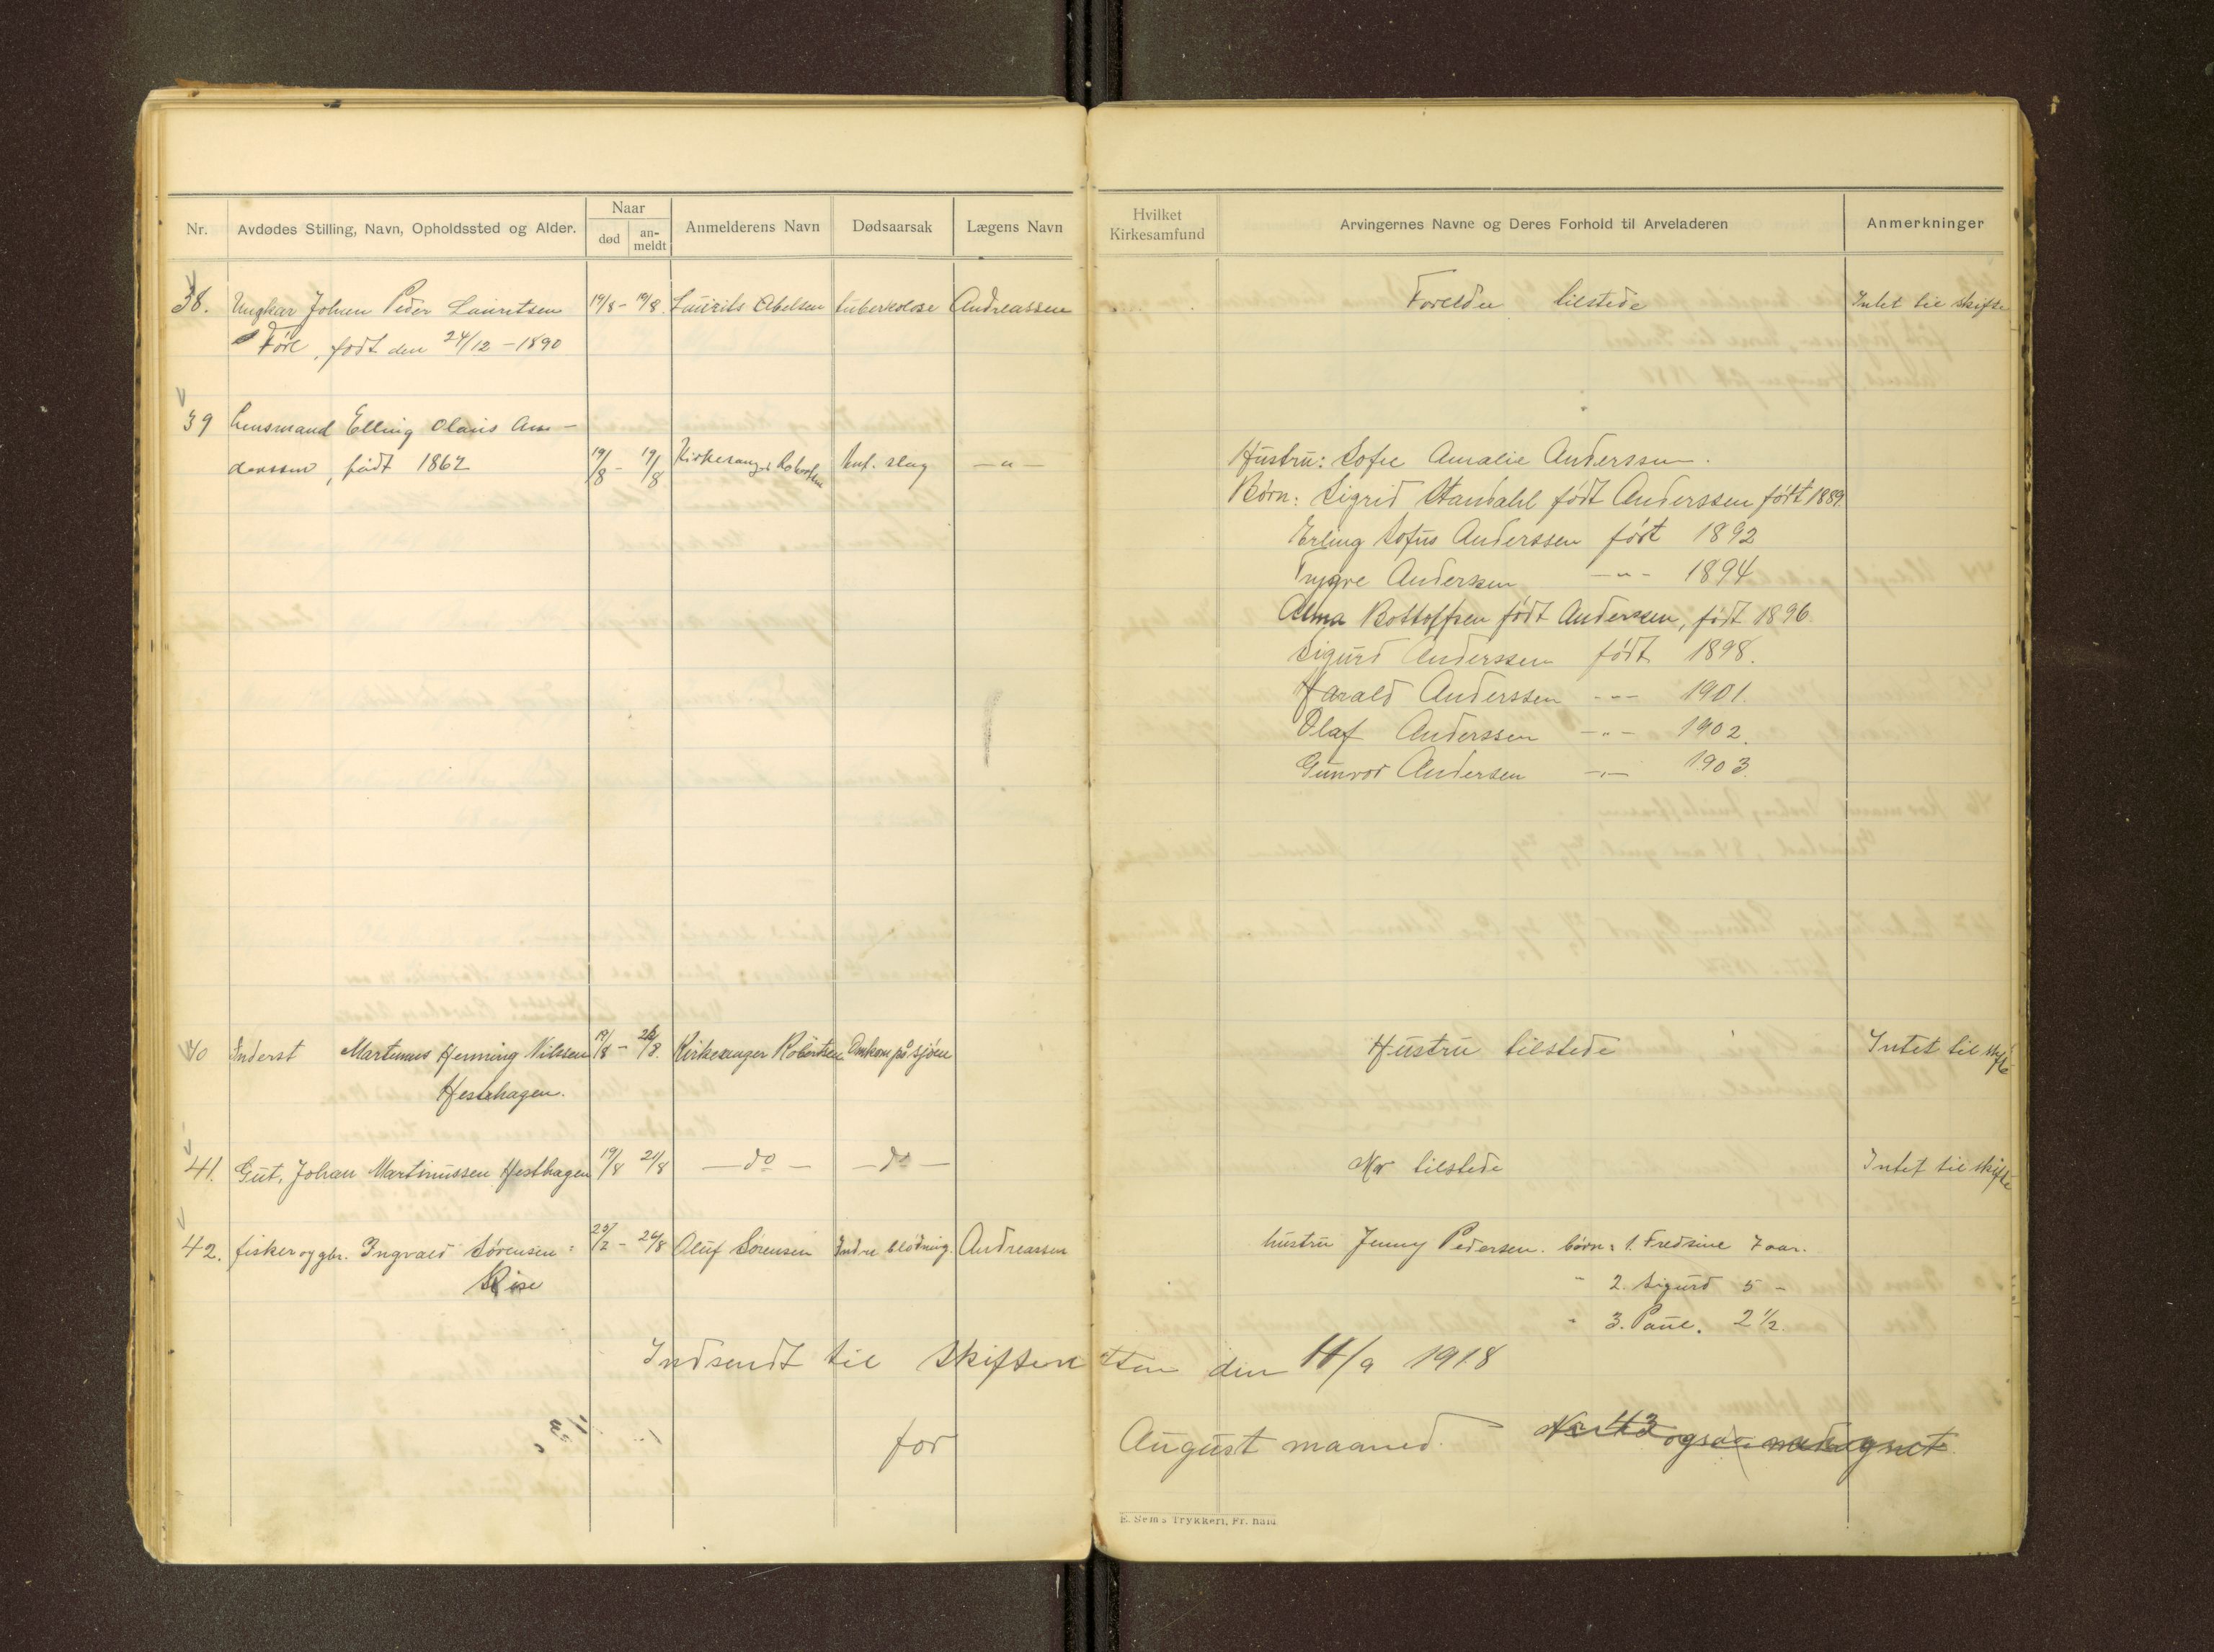 Nr. Avdødes Stilling, Navn, Opholdssted og Alder. Naar død an-meldt Anmelderens Navn Dødsaarsak Lægens Navn
Hvilket Kirkesamfund Arvingernes Navne og Deres Forhold til Arveladeren Anmerkninger
38. Ungkar Johan Peder Lauritsen 19/8 - 19/8. Laurits Abelsen tuberkolose Andreassen Foreldre tilstede Intet til skifte
Føre, født den 24/12 - 1890
39 Lensmand Elling Olaus An-
derssen, født 1862 19/8 - 19/8 Kirkesanger Robertsen slag - " -
Hustru: Sofie Amalie Anderssen.
Børn: Sigrid Standahl født Anderssen født 1889.
Erling Sofus Anderssen født 1892
Trygve Anderssen - " - 1894
Alma født Anderssen, født 1896
Sigurd Anderssen født 1898.
Harald Anderssen - " - 1901.
Olaf Anderssen - " - 1902.
Gunvor Andersen - " - 1903.
40 Inderst Martinus Henning Nilssen 19/8 - /8. Kirkesanger Robertsen Omkom på sjøen Hustru tilstede Intet til skifte
Hesthagen.
41. Gut, Johan Martinussen Hesthagen 19/8 21/8 - do - - do - Mor tilstede Intet til skifte
42. fisker og gbr. Ingvald Sørensen 25/2 - 26/8 Oluf Sørensen Indre blødning. Andreassen hustru Jenny Pedersen. børn: 1. Fredsine 7 aar.
Rise " 2. Sigurd 5 -
" 3. Paul. 2 1/2.
Indsendt til skifteretten den 11/9 1918
for August maaned. Nr 43 ogsaa medregnet
E. Sem's Trykkeri, Fr.hald.